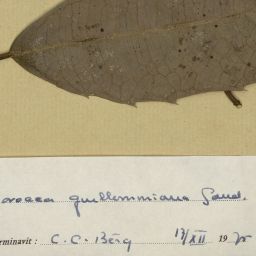 orocea guillemmiana Gaud.
erminavit : C. C. Berg 17/XII 1975